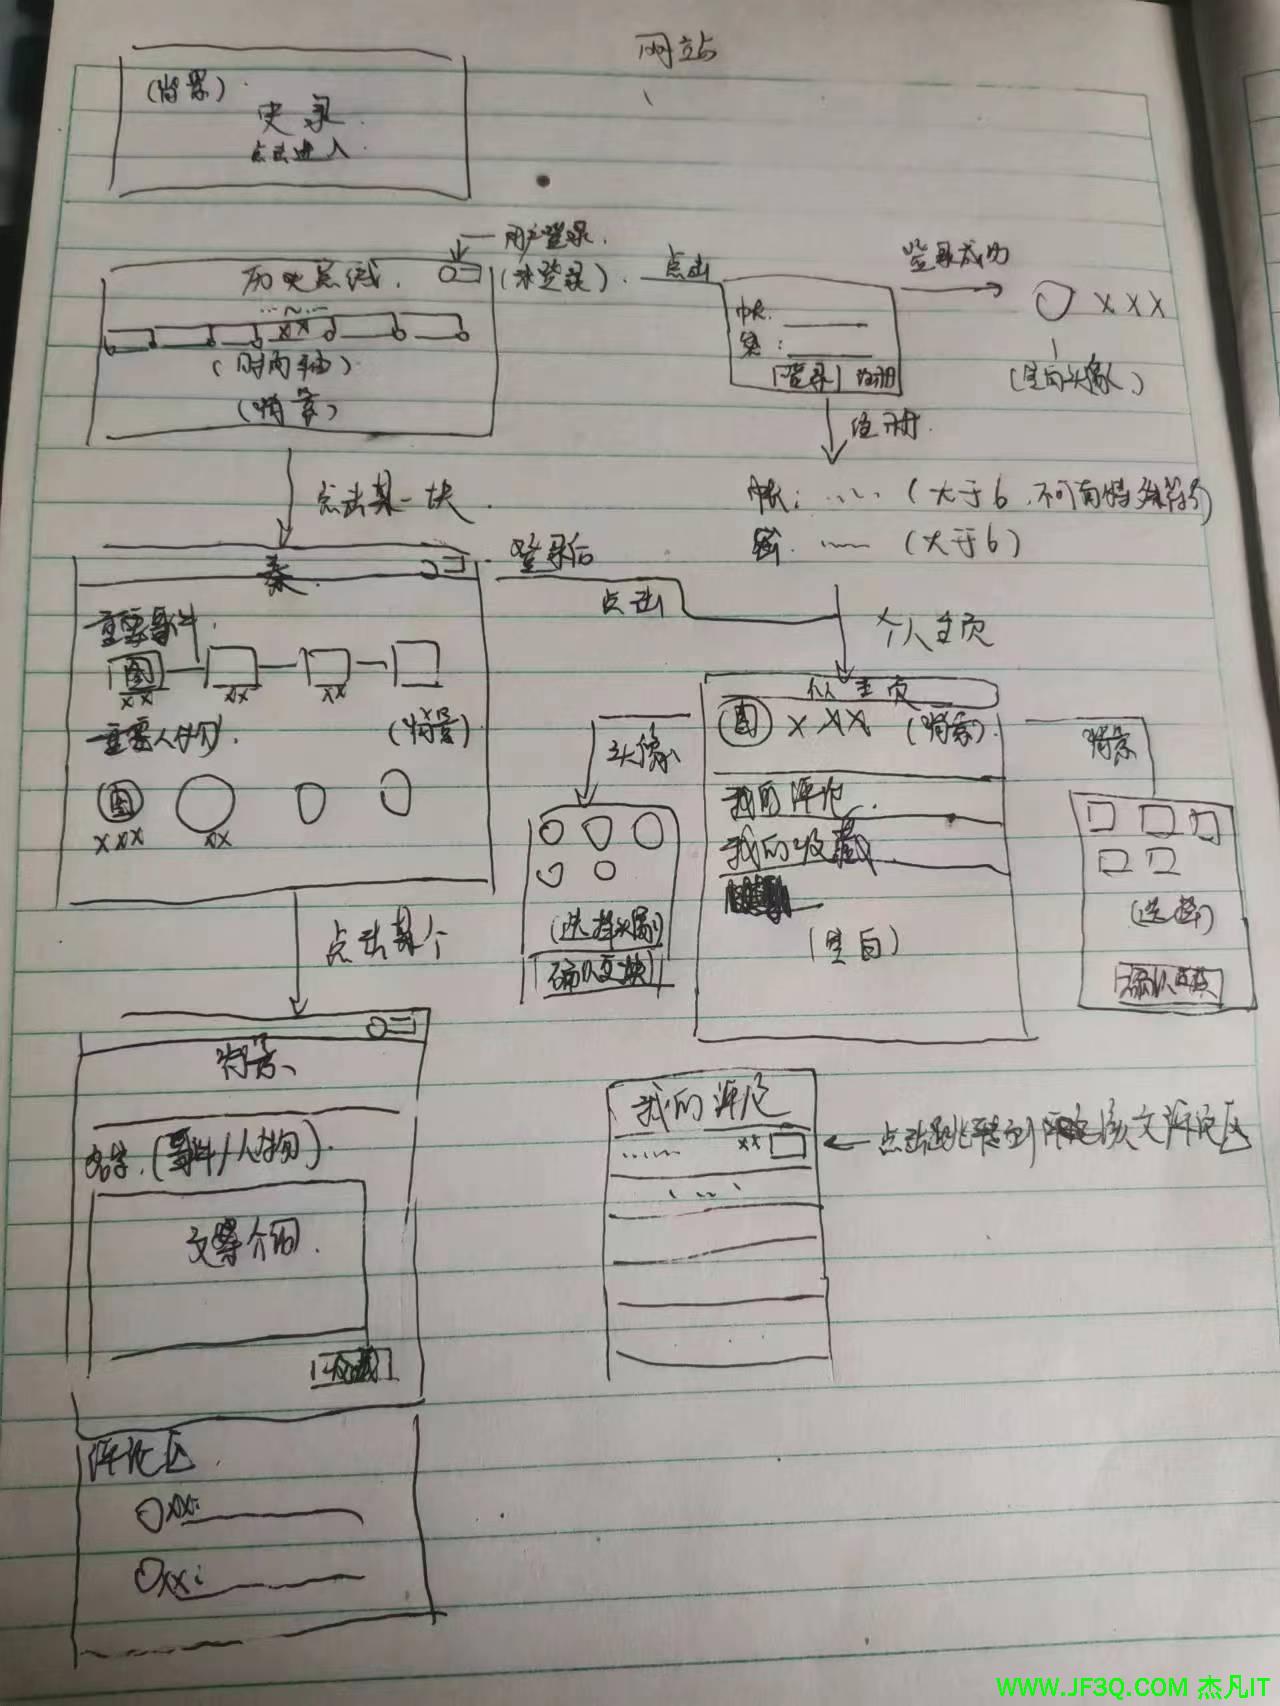 网站
(背景)
史录
点击进入
用户登录
历史总线
(未登录)
点击
登录成功
XXX
(空白头像)
帐:
密:
登录 注册
(时间轴)
(背景)
注册
点击某一块
帐: …… (大于6,不可有特殊符号)
密: …… (大于6)
秦
登录后
点击
个人主页
重要事件
图
xx xx xx xx
重要人物 (背景)
图
xxx xx
个人主页
图 XXXX (背景)
头像
背景
我的评论
我的收藏
(空白)
(选择头像)
确认更换
(选择)
确认更换
点击某个
背景
名字 (事件/人物)
文字介绍
收藏
我的评论
…… xx
点击跳转到该文评论区
评论区
xx:
xx:
WWW.JF3Q.COM 杰凡IT